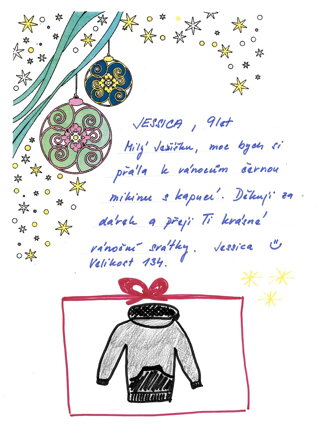 JESSICA, 9 let
Milý Ježíšku, moc bych si
přála k vánocům černou
mikinu s kapucí. Děkuji za
dárek a přeji Ti krásné
vánoční svátky. Jessica
Velikost 134.